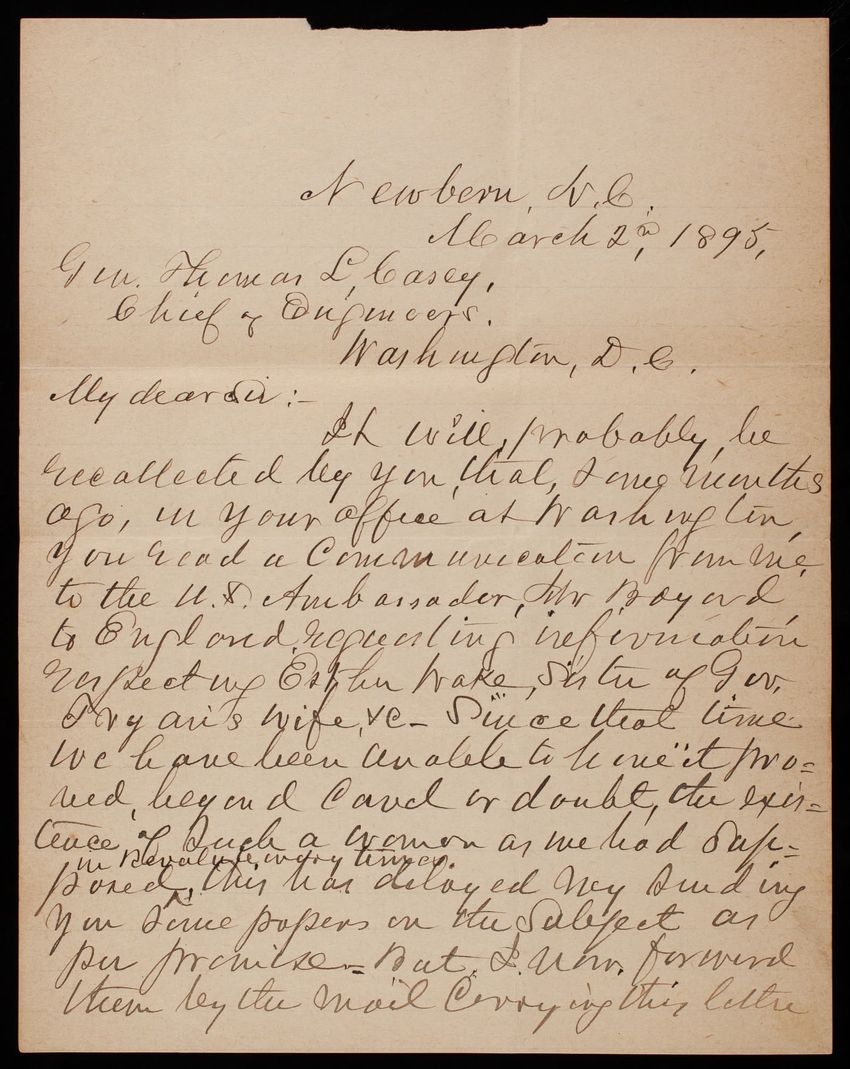 Newbern, N.C.
March 2nd, 1895,
Gen. Thomas L. Casey,
Chief of Engineers.
Washington, D.C.
My dear Sir:-
It will, probably, be
recollected by you, that, some months
ago, in your office at Washington,
you read a Communication from me,
to the U.S. Ambassador, Mr Bayard,
to England, requesting information
respecting Esther Wake, Sister of Gov.
Tryon's wife, &c- Since that time
we have been unable to have it pro=
ved, beyond cavel or doubt, the exis=
tence of such a woman as we had Sup=
in Revolutionary times.
posed, this has delayed my sending
you some papers on the Subject as
per promise- But, I, now, forward
them by the mail Carrying this letter